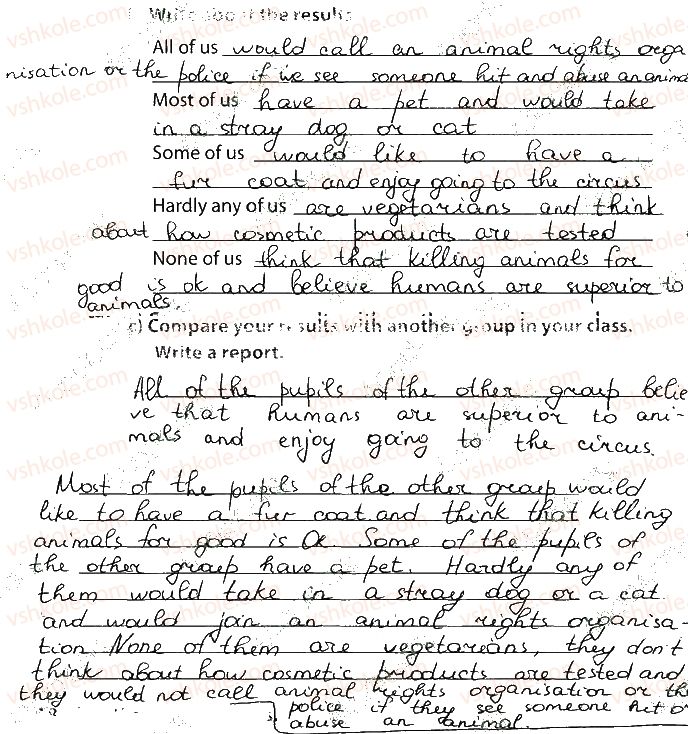 Write about the results
All of us would call an animal rights orga
nisation or the police if we see someone hit and abuse an anima
Most of us have a pet and would take
in a stray dog or cat
Some of us would like to have a
fur coat and enjoy going to the circus
Hardly any of us are vegetarians and think
about how cosmetic products are tested
None of us think that killing animals for
good is ok and believe humans are superior to
animals.
c) Compare your results with another group in your class.
Write a report.
All of the pupils of the other group belie
ve that humans are superior to ani-
mals and enjoy going to the circus.
Most of the pupils of the other group would
like to have a fur coat and think that killing
animals for good is Ok. Some of the pupils of
the other group have a pet. Hardly any of
them would take in a stray dog or a cat
and would join an animal rights organisa-
tion None of them are vegetareans, they don't
think about how cosmetic products are tested and
they would not call animal rights organisation or th
police if they see someone hit or
abuse an animal.
vshkole.com